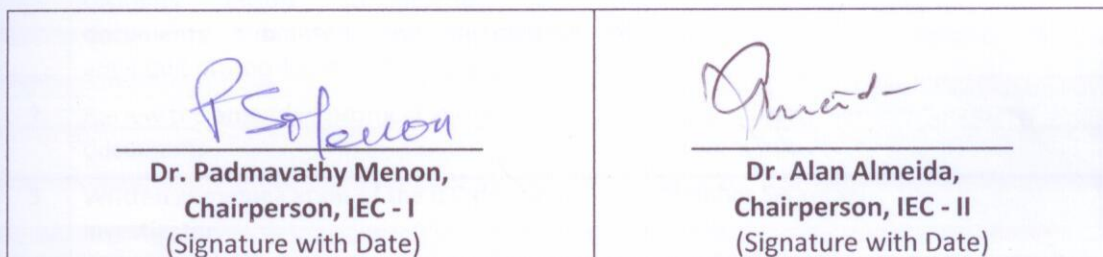 Dr. Padmavathy Menon,
Chairperson, IEC - I
(Signature with Date)
Dr. Alan Almeida,
Chairperson, IEC - II
(Signature with Date)